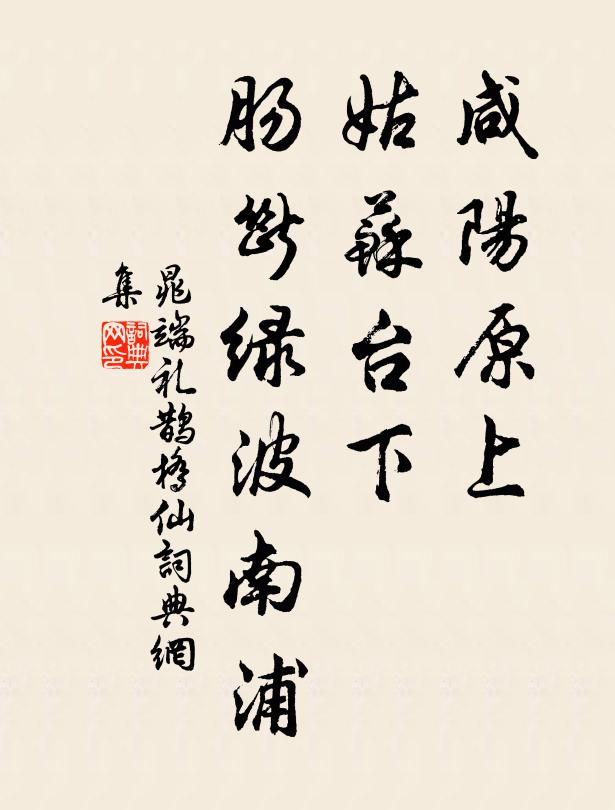 咸陽原上
姑蘇台下
肠断緑波南浦
晁端礼鹊橋仙詞典網
集
詞典
网印